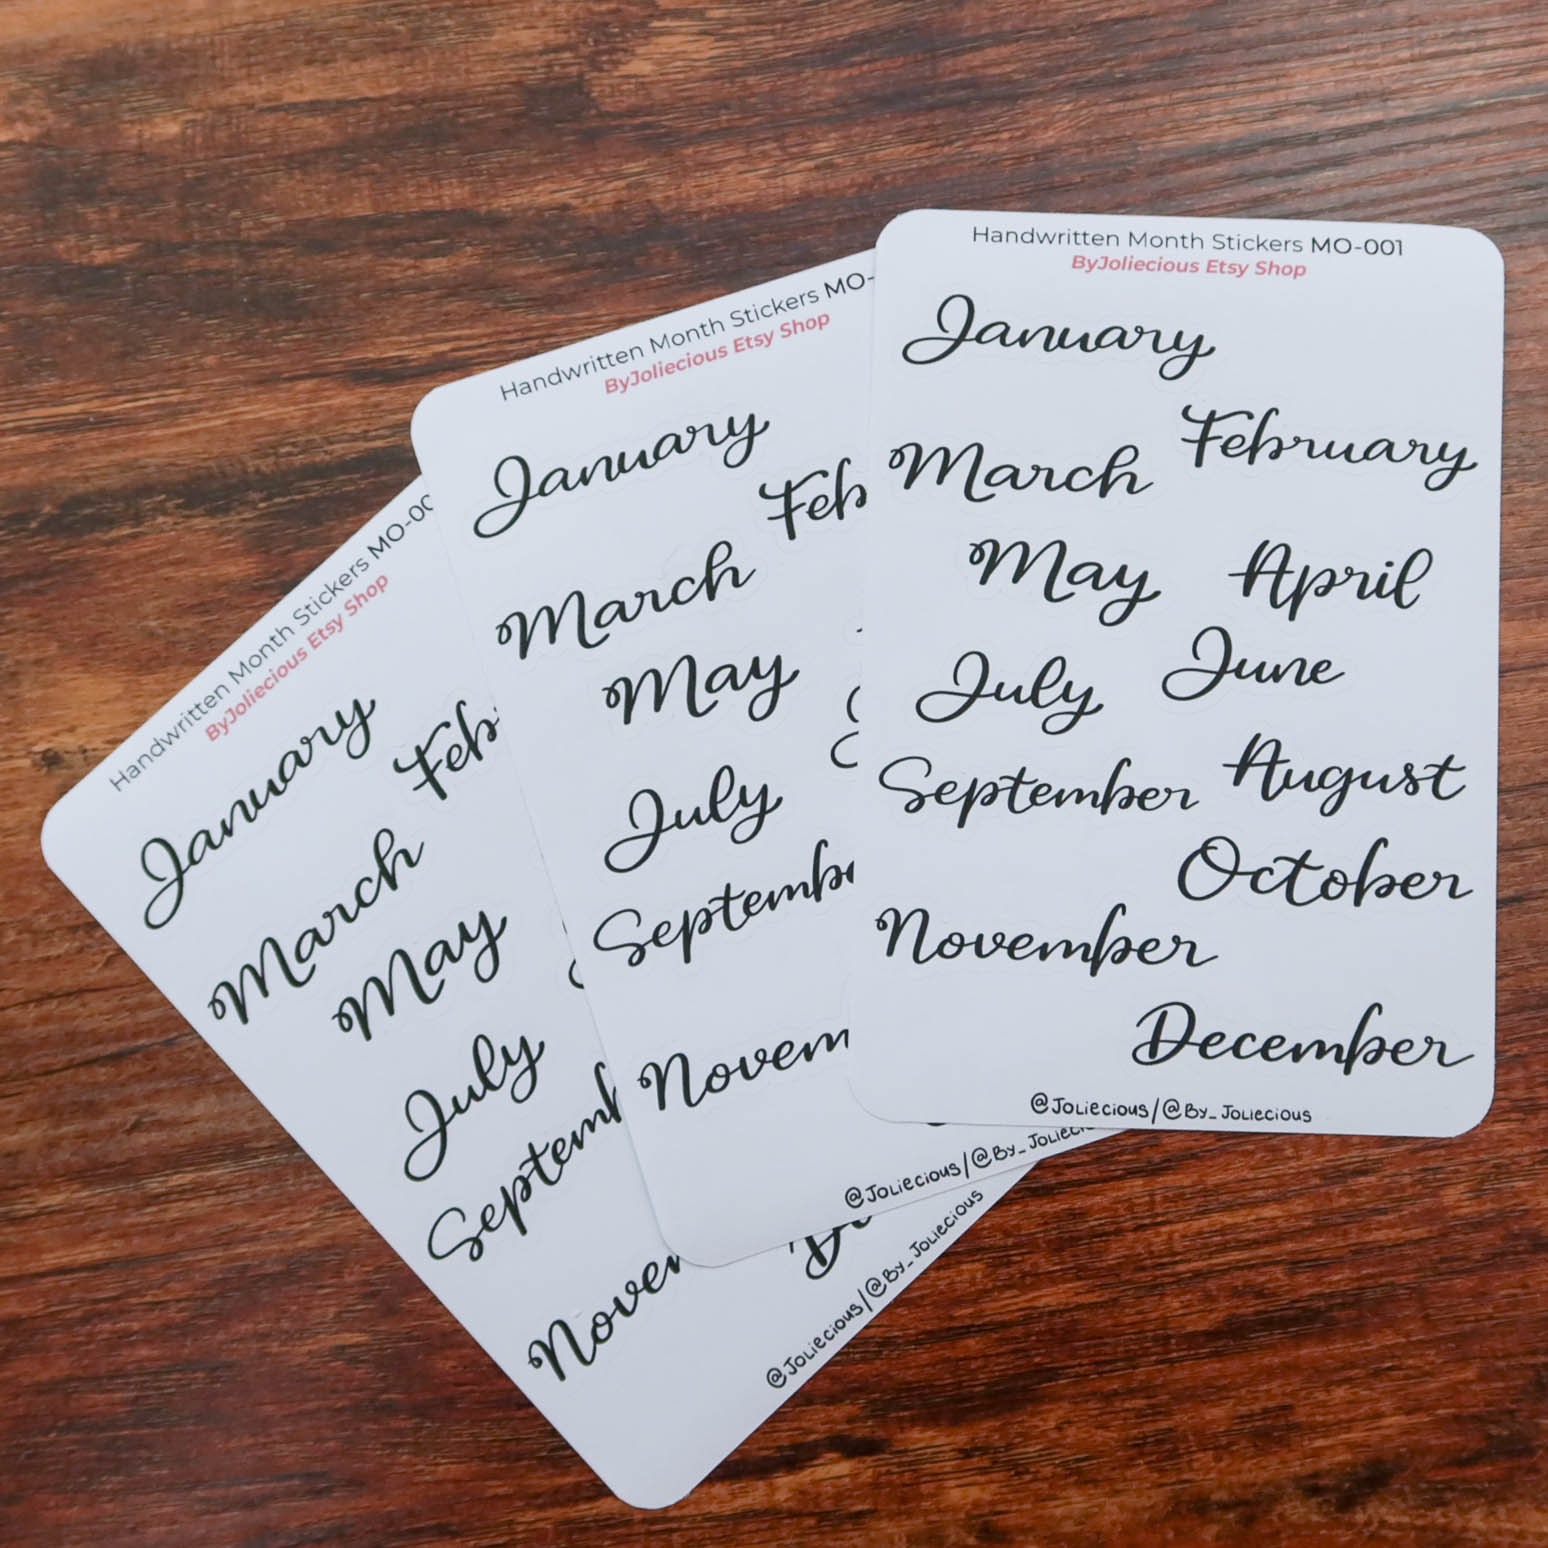 Handwritten Month Stickers MO-00
ByJoliecious Etsy Shop
January
Feb
March
May
July
Septemb
Novem
De
@Joliecious/@By_Joliecious
Handwritten Month Stickers MO-
ByJoliecious Etsy Shop
January
Feb
March
May
July
Septembe
Novem
@Joliecious/@By_Joliec
Handwritten Month Stickers MO-001
ByJoliecious Etsy Shop
January
February
March
April
May
June
July
August
September
October
November
December
@Joliecious/@By_Joliecious